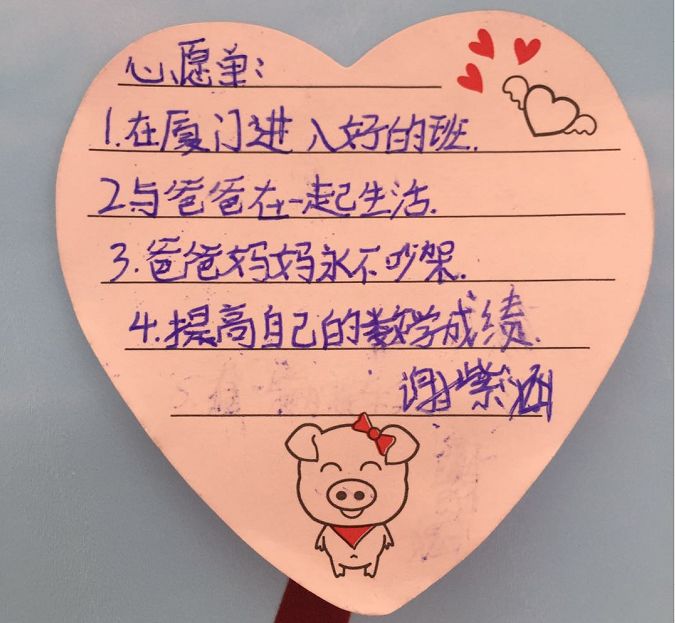 心愿单:
1.在厦门进入好的班.
2与爸爸在一起生活.
3.爸爸妈妈永不吵架.
4.提高自己的数学成绩.
谢紫涵